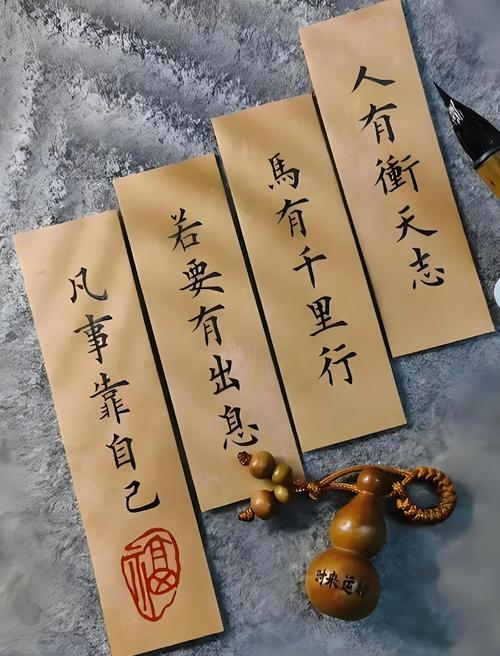 人有衝天志
馬有千里行
若要有出息
凡事靠自己
福
时来运转